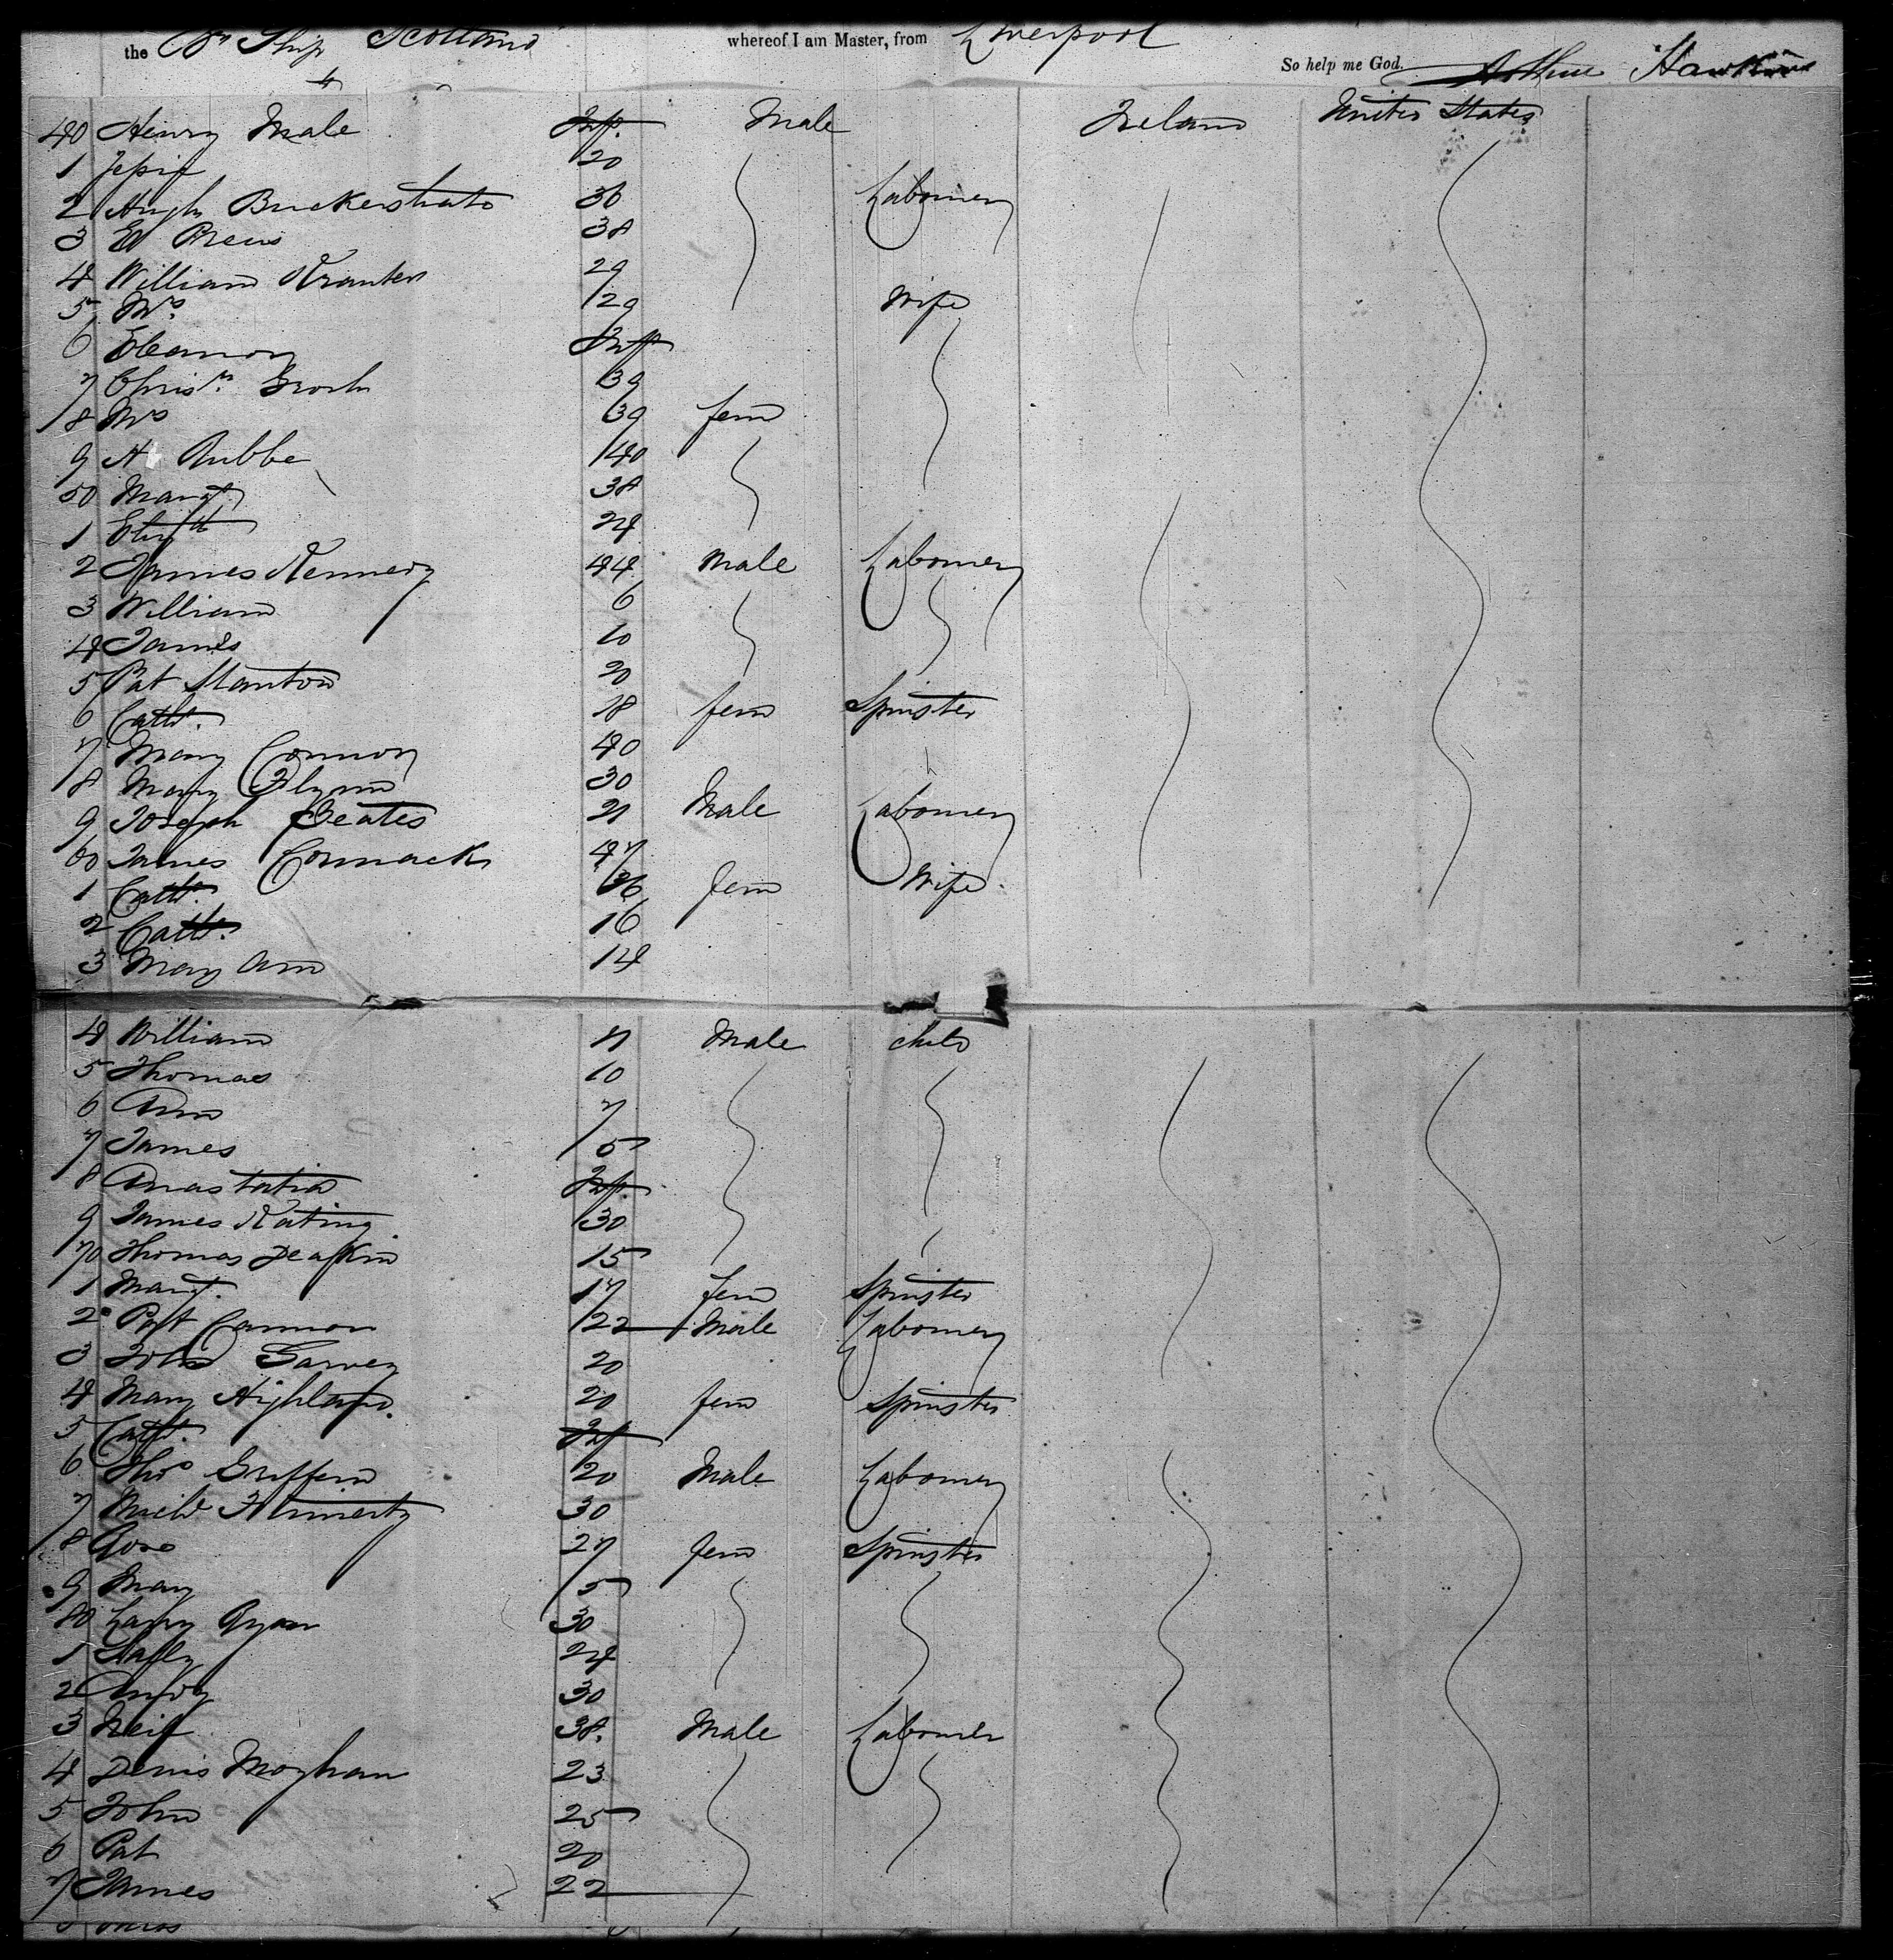 the Br Ship Scotland whereof I am Master, from Liverpool
So help me God. Arthur Hawkins
40 Henry Male Inf. Male Ireland United States
1 Jessie 20
2 Hugh 36 Labourer
3 38
4 William 29
5 Mrs 29 Wife
6 Eleanor Inf
7 Christr. 39
8 Mrs 39 fem
9 H Rubbe 40
50 Margt. 38
1 Elizth 24
2 James Kennedy 44 Male Labourer
3 William 6
4 James 10
5 Pat Stanton 20
6 Cathe. 18 fem Spinster
7 Mary Connor 40
8 Mary Flynn 30
9 Joseph Beates 21 Male Labourer
60 James Cormack 47
1 Cathe. 36 fem Wife
2 Cathe. 16
3 Mary Ann 14
4 William 11 Male child
5 Thomas 10
6 Ann 7
7 James 5
8 Anastatia Inf.
9 James Kating 30
70 Thomas Deaskin 15
1 Margt. 17 fem Spinster
2 Pat Cannon 22 Male Labourer
3 John Garvey 20
4 Mary Highland. 20 fem Spinster
5 Cathe. Inf
6 Thos Griffein 20 Male Labourer
7 Michl 30
8 27 fem Spinster
9 Mary 5
80 Larry Ryan 30
1 Sally 24
2 Andy 30
3 Neil 38. Male Labourer
4 Denis Moghan 23
5 John 25
6 Pat 20
7 James 22